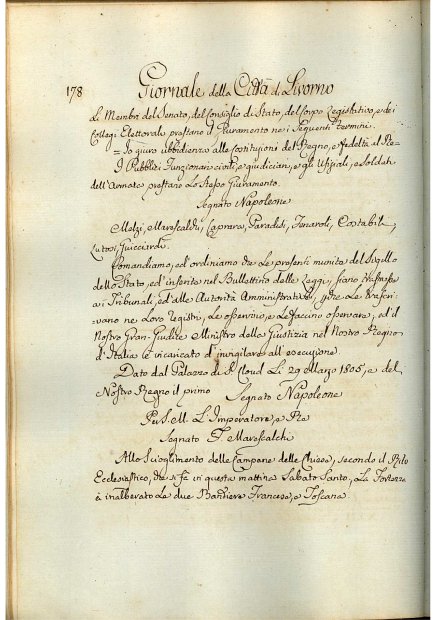 178 Giornale della Città di Livorno
Li Membri del Senato, del Consiglio di Stato, del Corpo Legislativo, e dei
Collegj Elettorale prestano il Giuramento ne i seguenti termini.
= Io giuro ubbidienza alle costituzioni del Regno, e fedeltà al Re=
I Pubblici Funzionari civili, e giudiciari, e gli Ufiziali, e Soldati
dell'Armata prestano lo stesso Giuramento.
Segnato Napoleone
Melzi, Marescalchi, Caprara, Paradisi, Fenaroli, Costabili,
Luosi, Guicciardi.
Comandiamo, ed ordiniamo che le presenti munite del Sigillo
dello Stato, ed inserite nel Bullettino delle Leggi, siano trasmesse
ai Tribunali, ed alle Autorità Amministrative, che le trascri=
vano ne Loro Registri, le osservino, e le faccino osservare, ed il
Nostro Gran-Giudice Ministro della Giustizia nel Nostro Regno
d'Italia è incaricato d'invigilare all'esecuzione.
Dato dal Palazzo di S. Cloud Li 29 Marzo 1805, e del
Nostro Regno il primo Segnato Napoleone
Per S. M. L'Imperatore, e Re
Segnato F. Marescalchi
Allo scioglimento delle Campane delle Chiese, secondo il Rito
Ecclesiastico, che si fà in questa mattina Sabato Santo, La Fortezza
à inalberato le due Bandiere Francese, e Toscana.